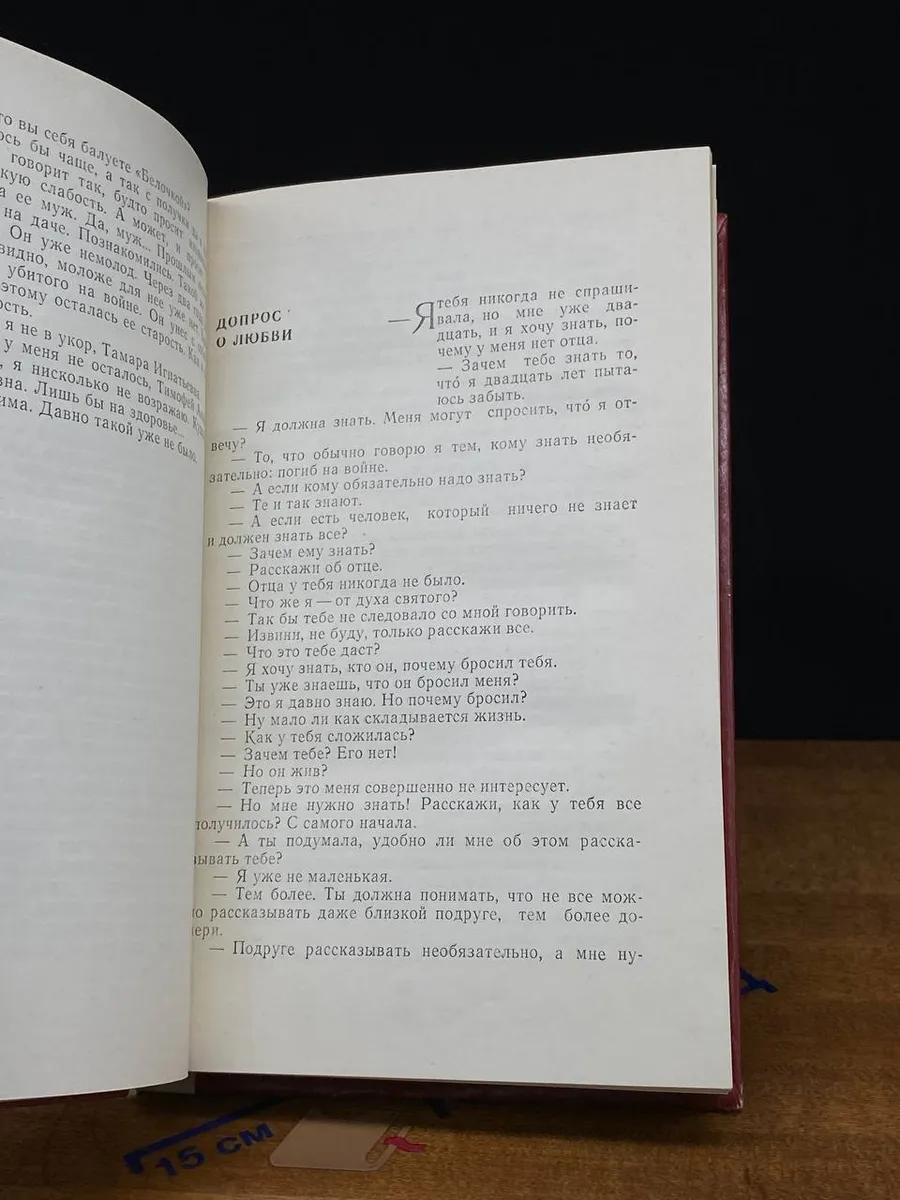 то вы себя балуете «Белочкой»?
ось бы чаще, а так с получки да
говорит так, будто просит
кую слабость. А может, и
а ее муж. Да, муж... Прошлым
на даче. Познакомились. Такой же
Он уже немолод. Через два
видно, моложе для нее уже нет
убитого на войне. Он унес с
этому осталась ее старость. Как
ость.
я не в укор, Тамара Игнатьевна
у меня не осталось, Тимофей
, я нисколько не возражаю.
вна. Лишь бы на здоровье...
има. Давно такой уже не было.
ДОПРОС
О ЛЮБВИ
—Я тебя никогда не спраши-
вала, но мне уже два-
дцать, и я хочу знать, по-
чему у меня нет отца.
— Зачем тебе знать то,
что́ я двадцать лет пыта-
юсь забыть.
— Я должна знать. Меня могут спросить, что́ я от-
вечу?
— То, что обычно говорю я тем, кому знать необя-
зательно: погиб на войне.
— А если кому обязательно надо знать?
— Те и так знают.
— А если есть человек, который ничего не знает
и должен знать все?
— Зачем ему знать?
— Расскажи об отце.
— Отца у тебя никогда не было.
— Что же я — от духа святого?
— Так бы тебе не следовало со мной говорить.
— Извини, не буду, только расскажи все.
— Что это тебе даст?
— Я хочу знать, кто он, почему бросил тебя.
— Ты уже знаешь, что он бросил меня?
— Это я давно знаю. Но почему бросил?
— Ну мало ли как складывается жизнь.
— Как у тебя сложилась?
— Зачем тебе? Его нет!
— Но он жив?
— Теперь это меня совершенно не интересует.
— Но мне нужно знать! Расскажи, как у тебя все
получилось? С самого начала.
— А ты подумала, удобно ли мне об этом расска-
зывать тебе?
— Я уже не маленькая.
— Тем более. Ты должна понимать, что не все мож-
но рассказывать даже близкой подруге, тем более до-
чери.
— Подруге рассказывать необязательно, а мне ну-
15 см